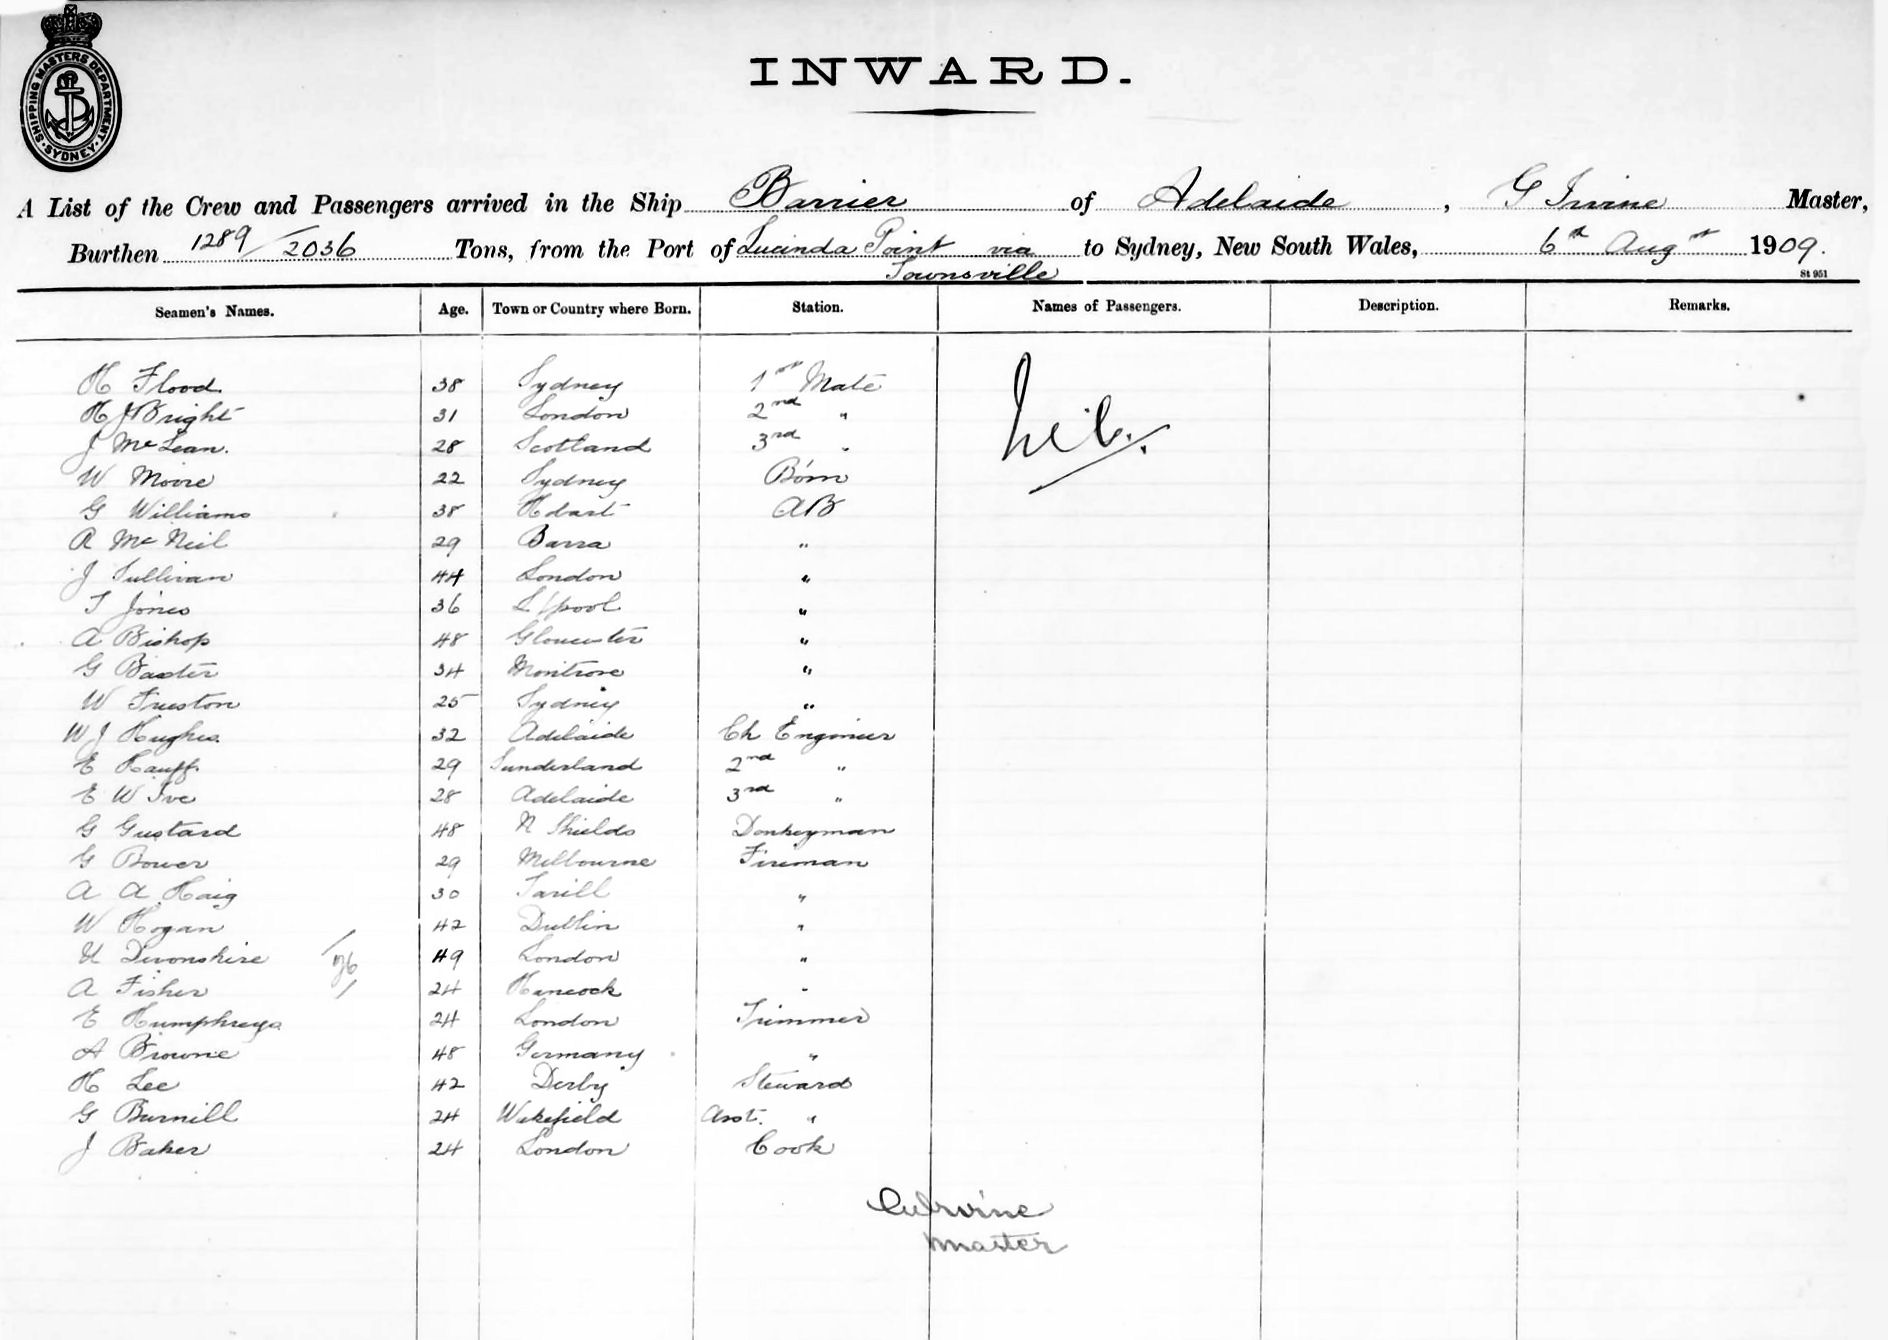 SHIPPING MASTERS DEPARTMENT · SYDNEY ·
INWARD.
A List of the Crew and Passengers arrived in the Ship Barrier of Adelaide, G Irvine Master,
Burthen 1289/2036 Tons, from the Port of Lucinda Point via Townsville to Sydney, New South Wales, 6th Augst 1909.
St 951
Seamen's Names. Age. Town or Country where Born. Station. Names of Passengers. Description. Remarks.
H Flood 38 Sydney 1st Mate Nil.
H J Bright 31 London 2nd "
J McLean. 28 Scotland 3rd "
W Moore 22 Sydney Bosn
G Williams 38 Hobart AB
R McNeil 29 Barra "
J Sullivan 44 London "
T Jones 36 L'pool "
A Bishop 48 Gloucester "
G Baxter 34 Montrose "
W Freeston 25 Sydney "
W J Hughes 32 Adelaide Ch Engineer
E Hauff 29 Sunderland 2nd "
E W Ive 28 Adelaide 3rd "
G Gustard 48 N Shields Donkeyman
G Bower 29 Melbourne Fireman
A A Haig 30 "
W Hogan 42 Dublin "
Devonshire 49 London "
A Fisher 24 Hancock "
E Humphreys 24 London Trimmer
A Browne 48 Germany "
H Lee 42 Derby Steward
G Burnill 24 Wakefield Asst. "
J Baker 24 London Cook
Irvine
Master